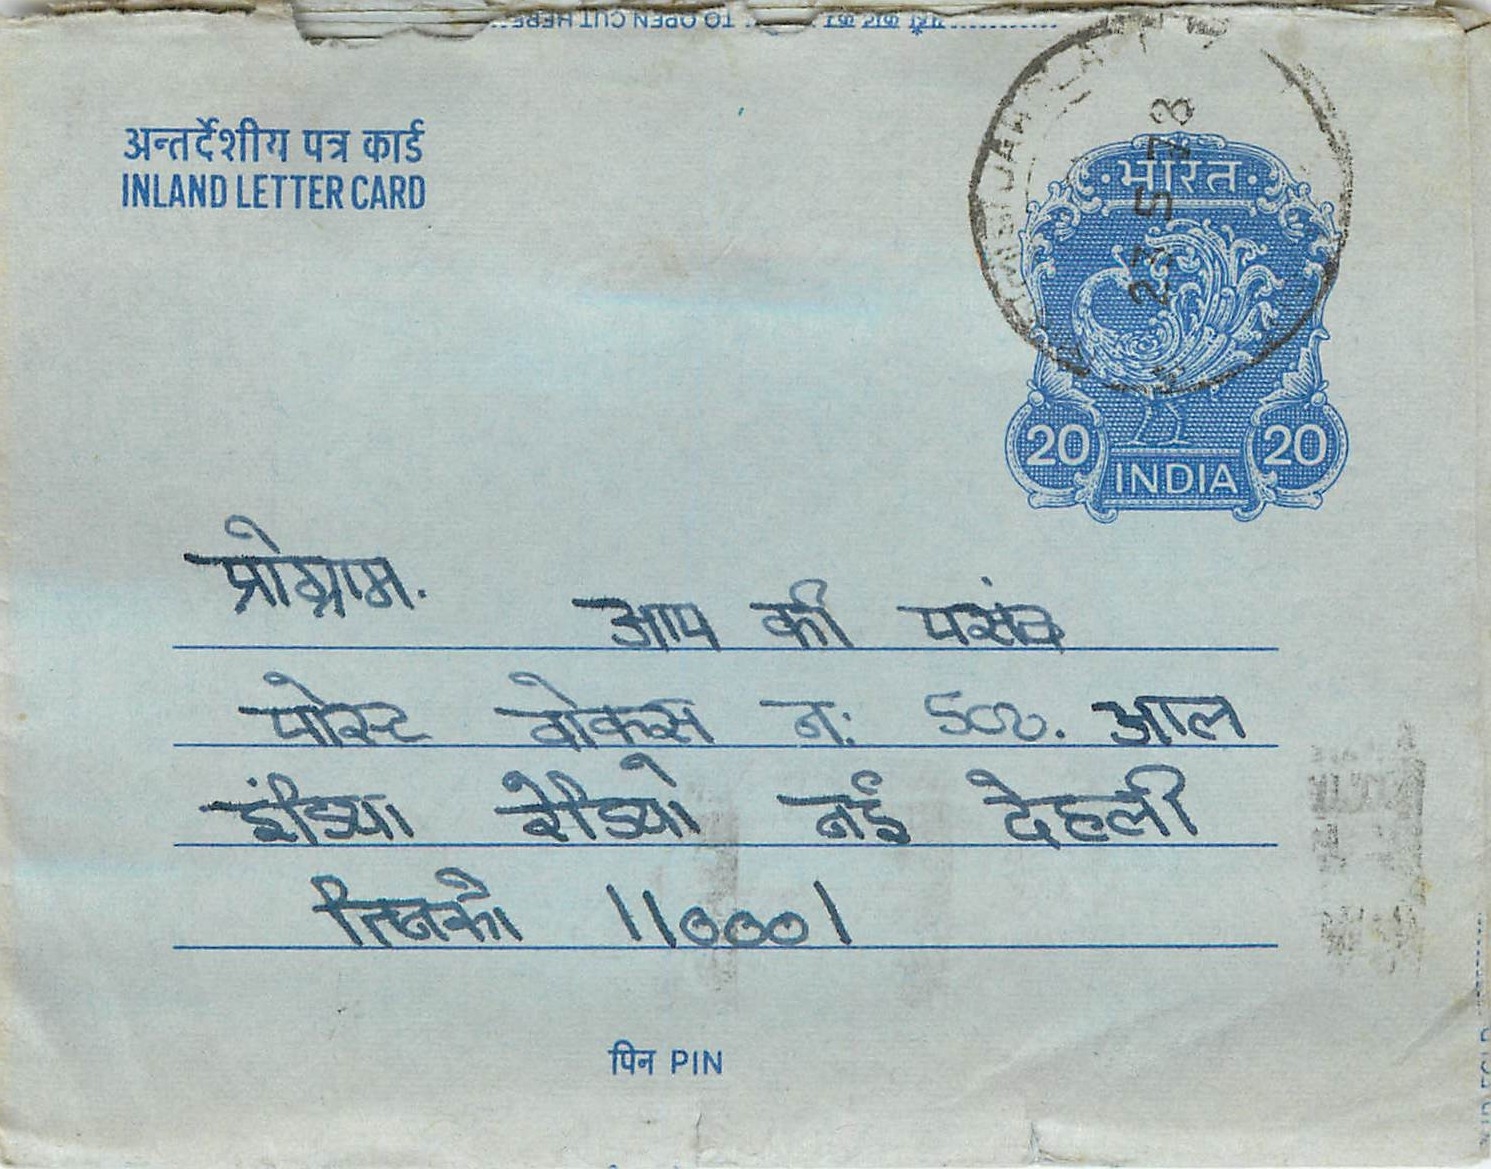 यहाँ काट कर TO OPEN CUT HERE
अन्तर्देशीय पत्र कार्ड
INLAND LETTER CARD
23 5 78
भारत
20 INDIA 20
प्रोग्राम.
आप की पसंद
पोस्ट वोकस न: 500. आल
इंडिया रेडियो नई देहली
110001
पिन PIN